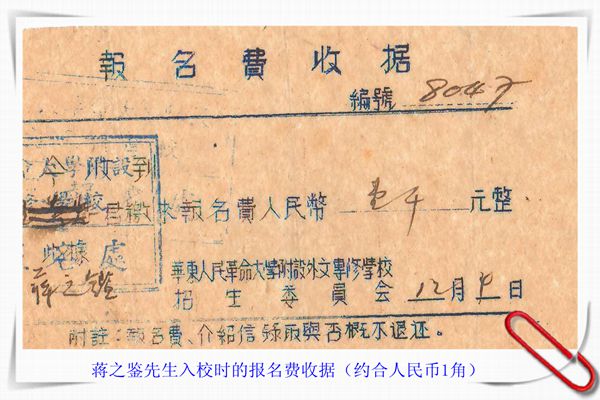 報名費收据
編號 8047
今 附設到
君繳來報名費人民幣 壹千 元整
處
蒋之鑑
華東人民革命大學附設外文專修學校
招生委員会 12月9日
附註：報名費、介紹信錄取與否概不退还。
蒋之鉴先生入校时的报名费收据（约合人民币1角）